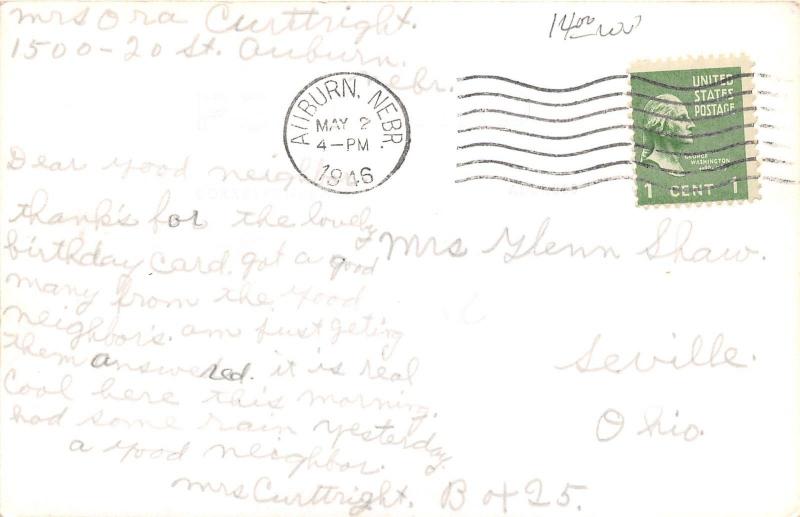 Mrs Ora Curttright.
1500-20 St. Auburn.
Nebr.
14⁰⁰
AUBURN, NEBR
MAY 2
4-PM
1946
UNITED
STATES
POSTAGE
GEORGE
WASHINGTON
1 CENT 1
Dear Good neighbor
thank's for the lovely
birthday card. got a good
many from the Good
neighbor's. am just geting
them answered. it is real
Cool here this morning.
had some rain yesterday.
a Good neighbor.
Mrs Curttright. B of 25.
Mrs Glenn Shaw.
Seville.
Ohio.